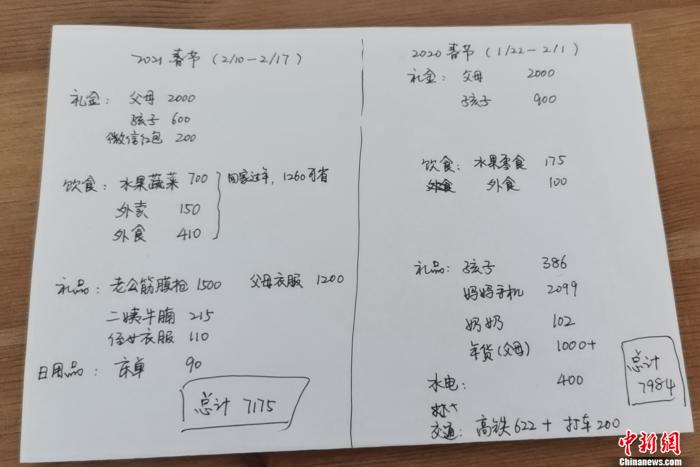 2021 春节 (2/10-2/17)
礼金: 父母 2000
孩子 600
微信红包 200
饮食: 水果蔬菜 700
外卖 150
外食 410
回家过年, 1260可省
礼品: 老公筋膜枪 1500 父母衣服 1200
二姨牛腩 215
侄女衣服 110
日用品: 床单 90
总计 7175
2020 春节 (1/22-2/1)
礼金: 父母 2000
孩子 900
饮食: 水果零食 175
外食 外食 100
礼品: 孩子 386
妈妈手机 2099
奶奶 102
年货(父母) 1000+
水电: 400
交通: 高铁 622 + 打车 200
总计
7984
中新网
Chinanews.com